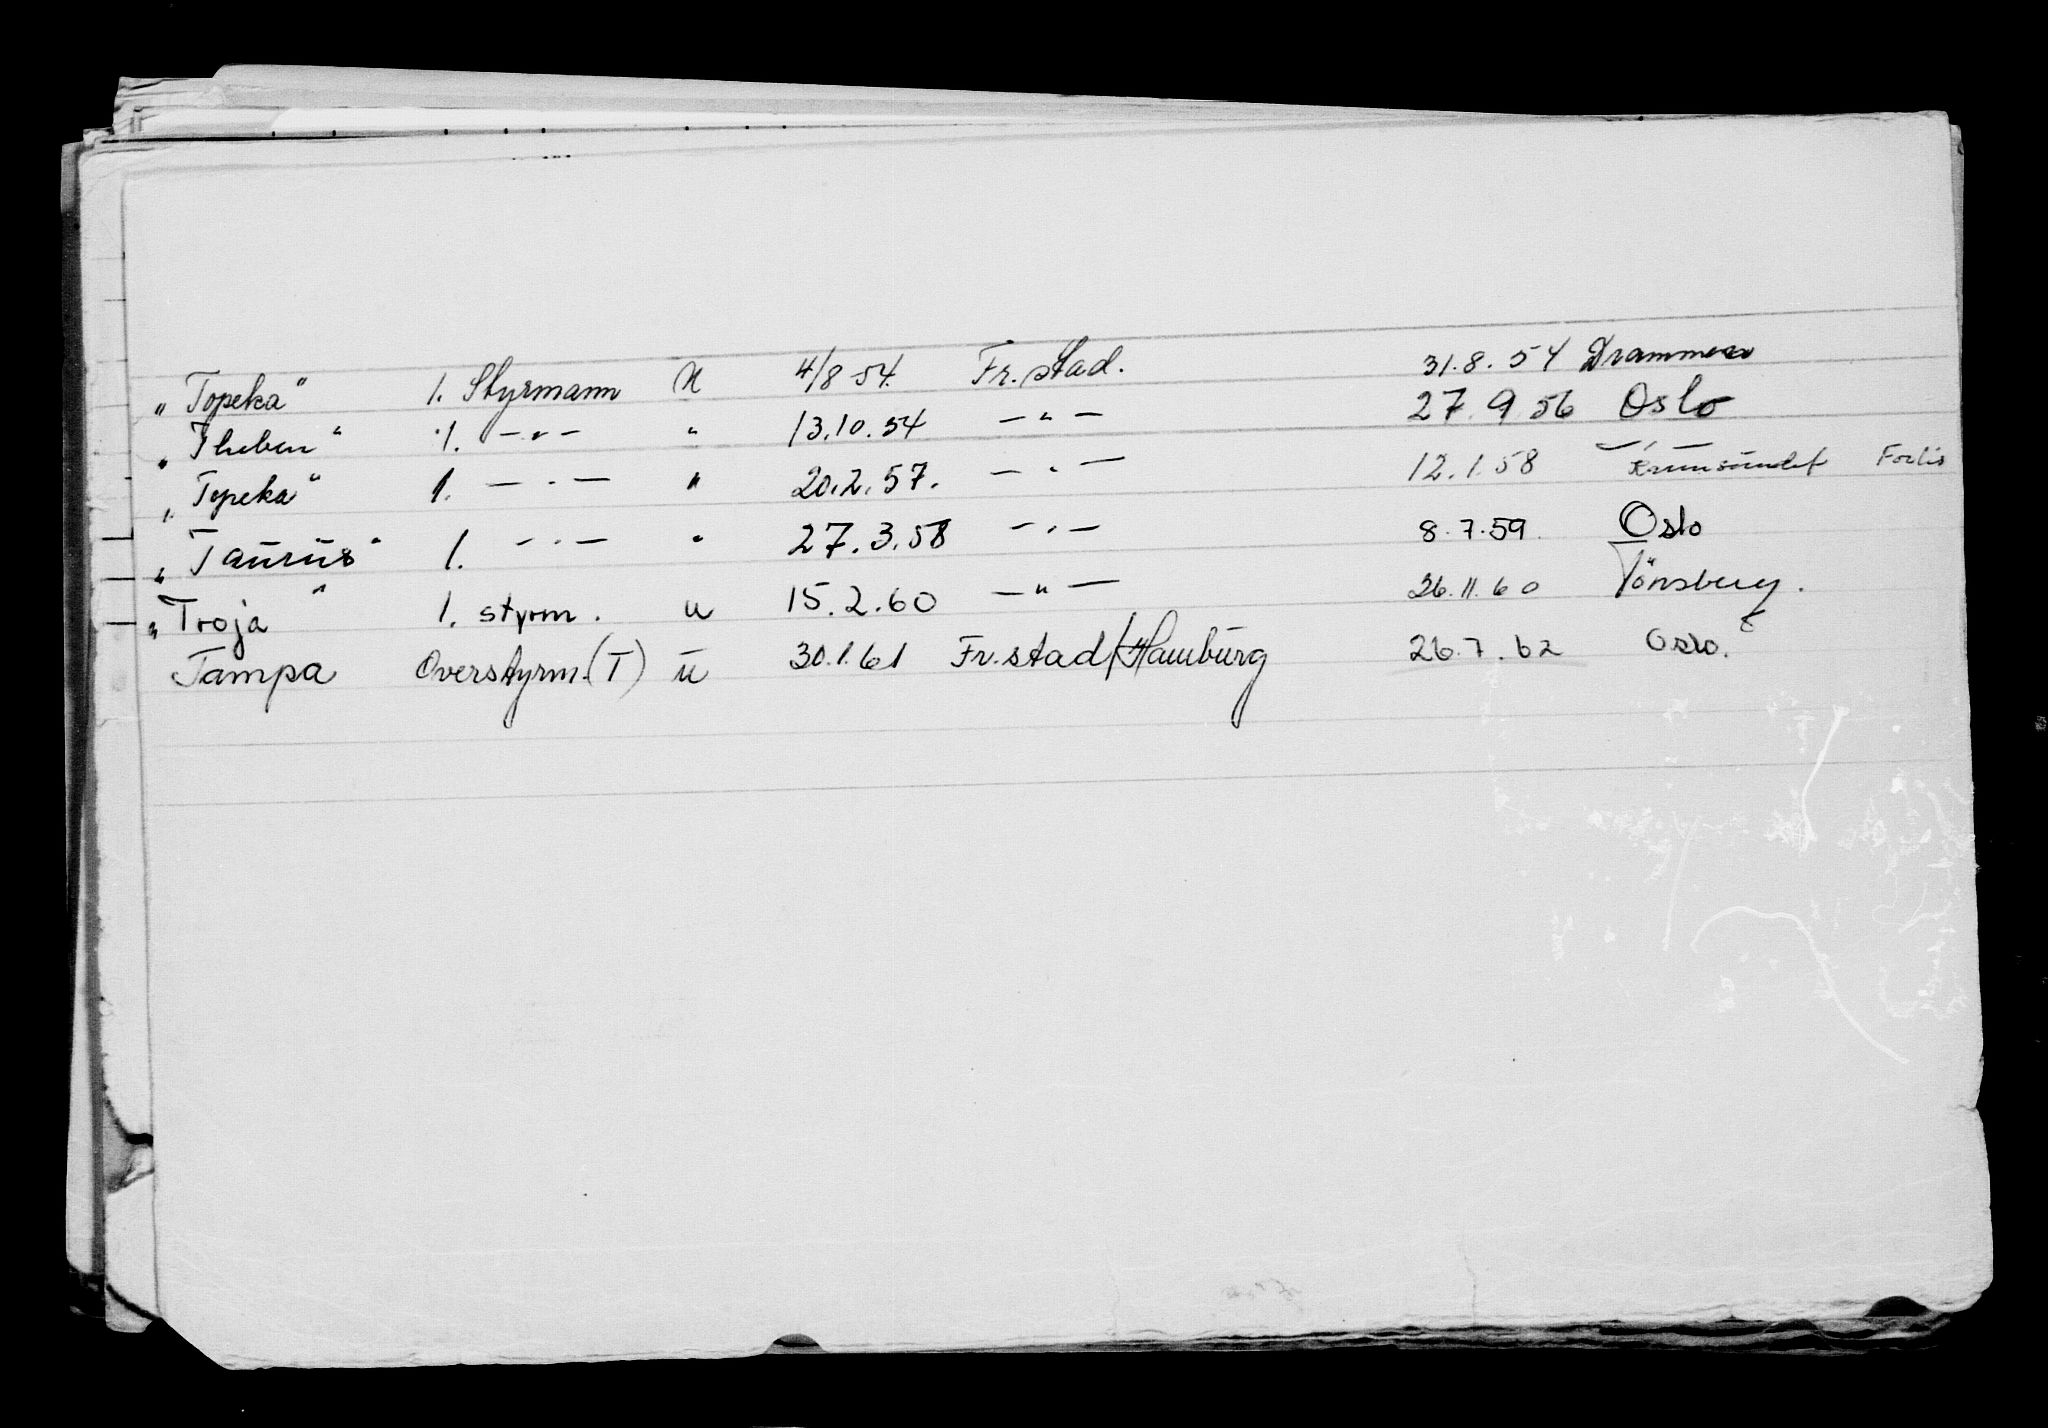 "Topeka" 1. Styrmann U 4/8 54. Fr.stad. 31.8.54 Drammen
"Theben" 1. —"— " 13.10.54 —"— 27.9.56 Oslo
"Topeka" 1. —"— " 20.2.57. —"— 12.1.58
"Taurus" 1. —"— " 27.3.58 —"— 8.7.59. Oslo
"Troja" 1. styrm. u 15.2.60 —"— 26.11.60 Tönsberg.
Tampa Overstyrm.(T) u 30.1.61 Fr.stad/Hamburg 26.7.62 Oslo.